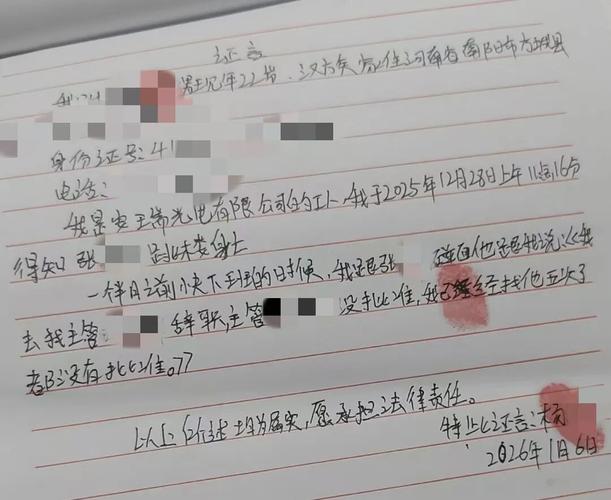 证言
我 男 现年22岁、汉族 家住河南省南阳市方城县
身份证号:41
电话:
我是安 光电有限公司的工人、我于2025年12月28日上午11点16分
得知张
一个月之前小夜下班的时候,我跟张 碰面他跟我说《我
去找主管 辞职,主管 没批准,我已经找他五次了
都没有批准。》
以上 均为属实,愿承担法律责任。
特此证言:杨
2026年1月6日